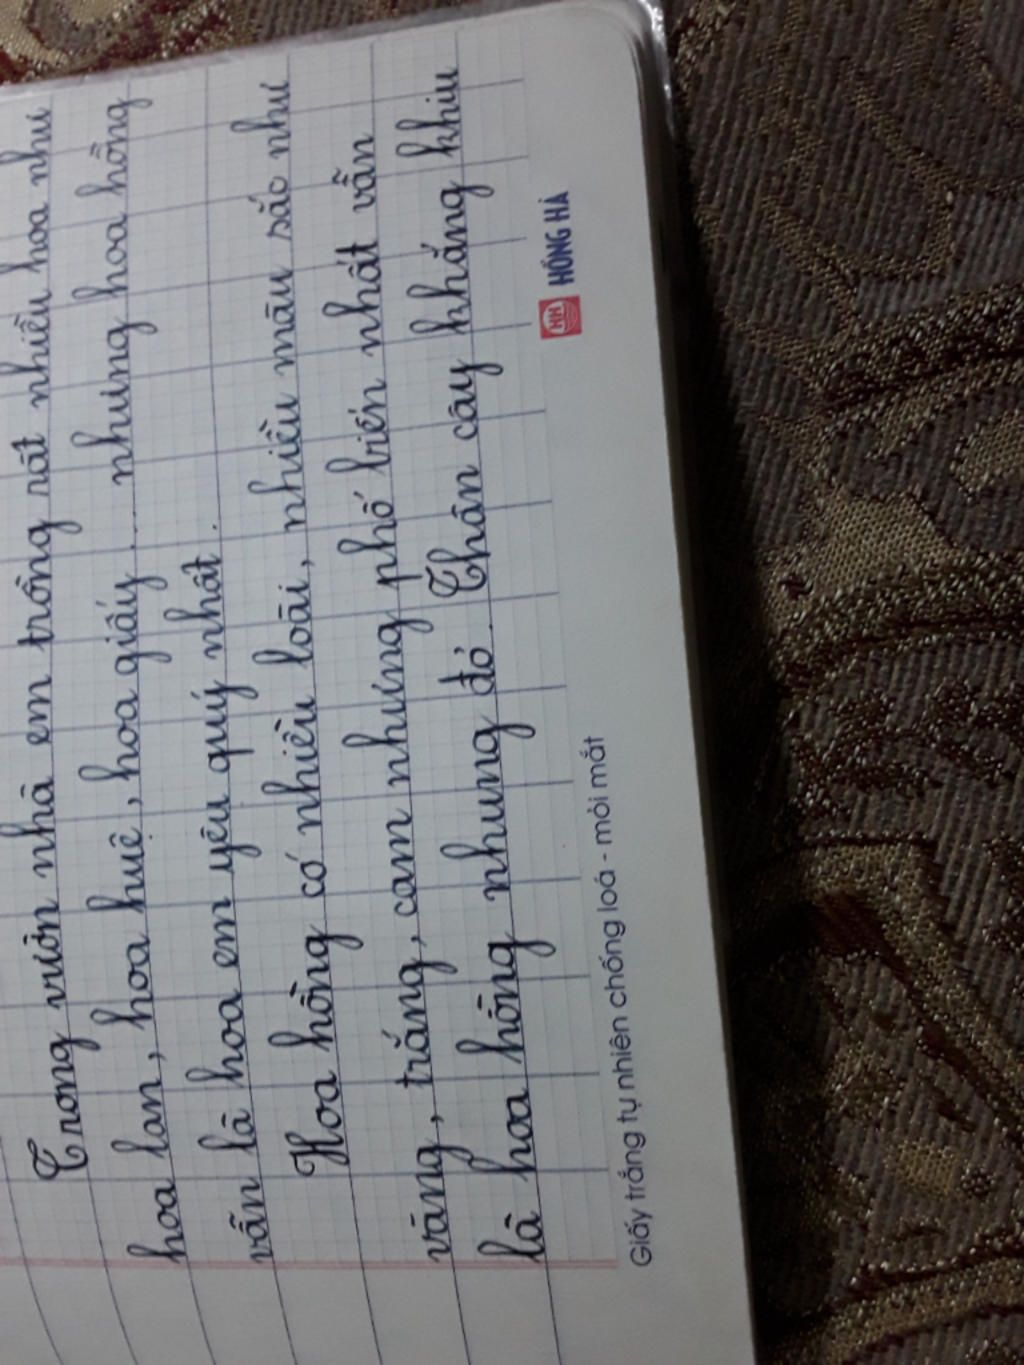 Trong vườn nhà em trồng rất nhiều hoa như
hoa lan, hoa huệ, hoa giấy... nhưng hoa hồng
vẫn là hoa em yêu quý nhất.
Hoa hồng có nhiều loài, nhiều màu sắc như
vàng, trắng, cam nhưng phổ biến nhất vẫn
là hoa hồng nhung đỏ. Thân cây khẳng khiu
Giấy trắng tự nhiên chống loá - mỏi mắt
HH HỒNG HÀ